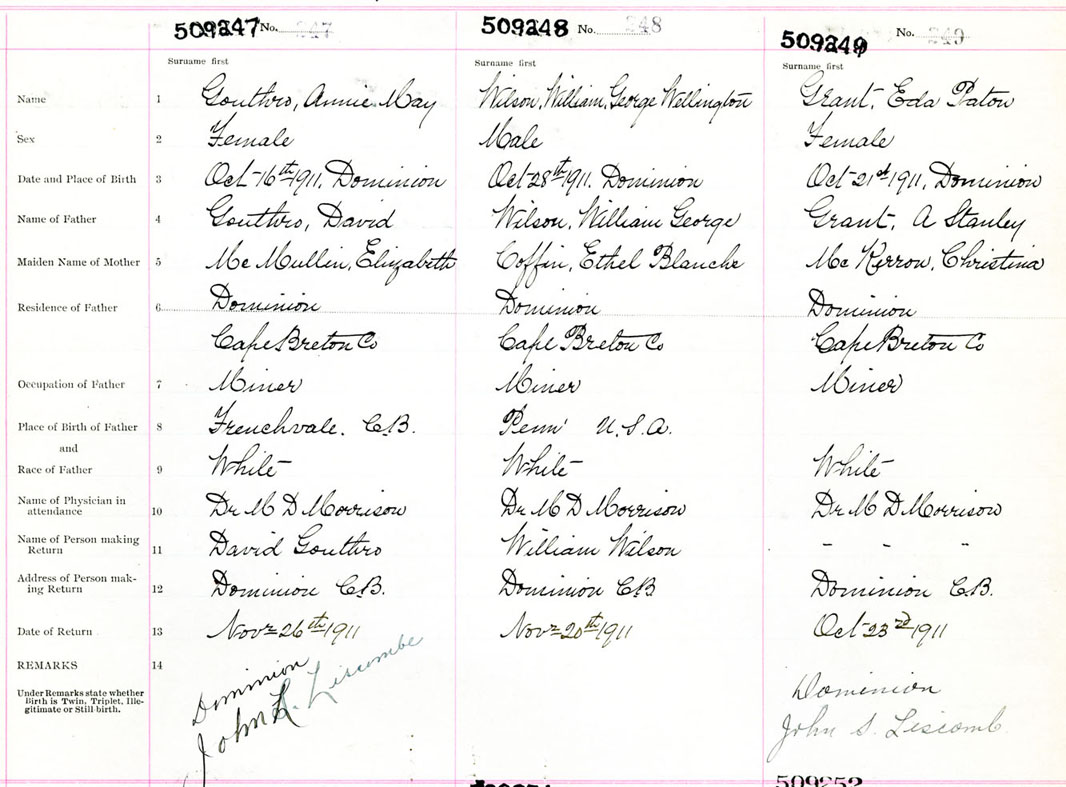 509247 No. 247 509248 No. 248 509249 No. 249
Surname first Surname first
Name 1 Gouthro, Annie May Wilson, William, George Wellington Grant, Eda Paton
Sex 2 Female Male Female
Date and Place of Birth 3 Oct 16th 1911, Dominion Oct 28th 1911. Dominion Oct 21st 1911, Dominion
Name of Father 4 Gouthro, David Wilson, William George Grant, A Stanley
Maiden Name of Mother 5 Mc Mullin, Elizabeth Coffin, Ethel Blanche Mc Kerron, Christina
Residence of Father 6 Dominion Dominion Dominion
Cape Breton Co Cape Breton Co Cape Breton Co
Occupation of Father 7 Miner Miner Miner
Place of Birth of Father 8 Frenchvale. C.B. Penn' U.S.A.
and
Race of Father 9 White White White
Name of Physician in
attendance 10 Dr M D Morrison Dr M D Morrison Dr M D Morrison
Name of Person making
Return 11 David Gouthro William Wilson - - -
Address of Person mak-
ing Return 12 Dominion C.B. Dominion CB Dominion C.B.
Date of Return 13 Novr 26th 1911 Novr 20th 1911 Oct 23rd 1911
REMARKS 14
Under Remarks state whether
Birth is Twin, Triplet, Ille-
gitimate or Still-birth.
Dominion
John S. Liscombe
Dominion
John S. Liscomb